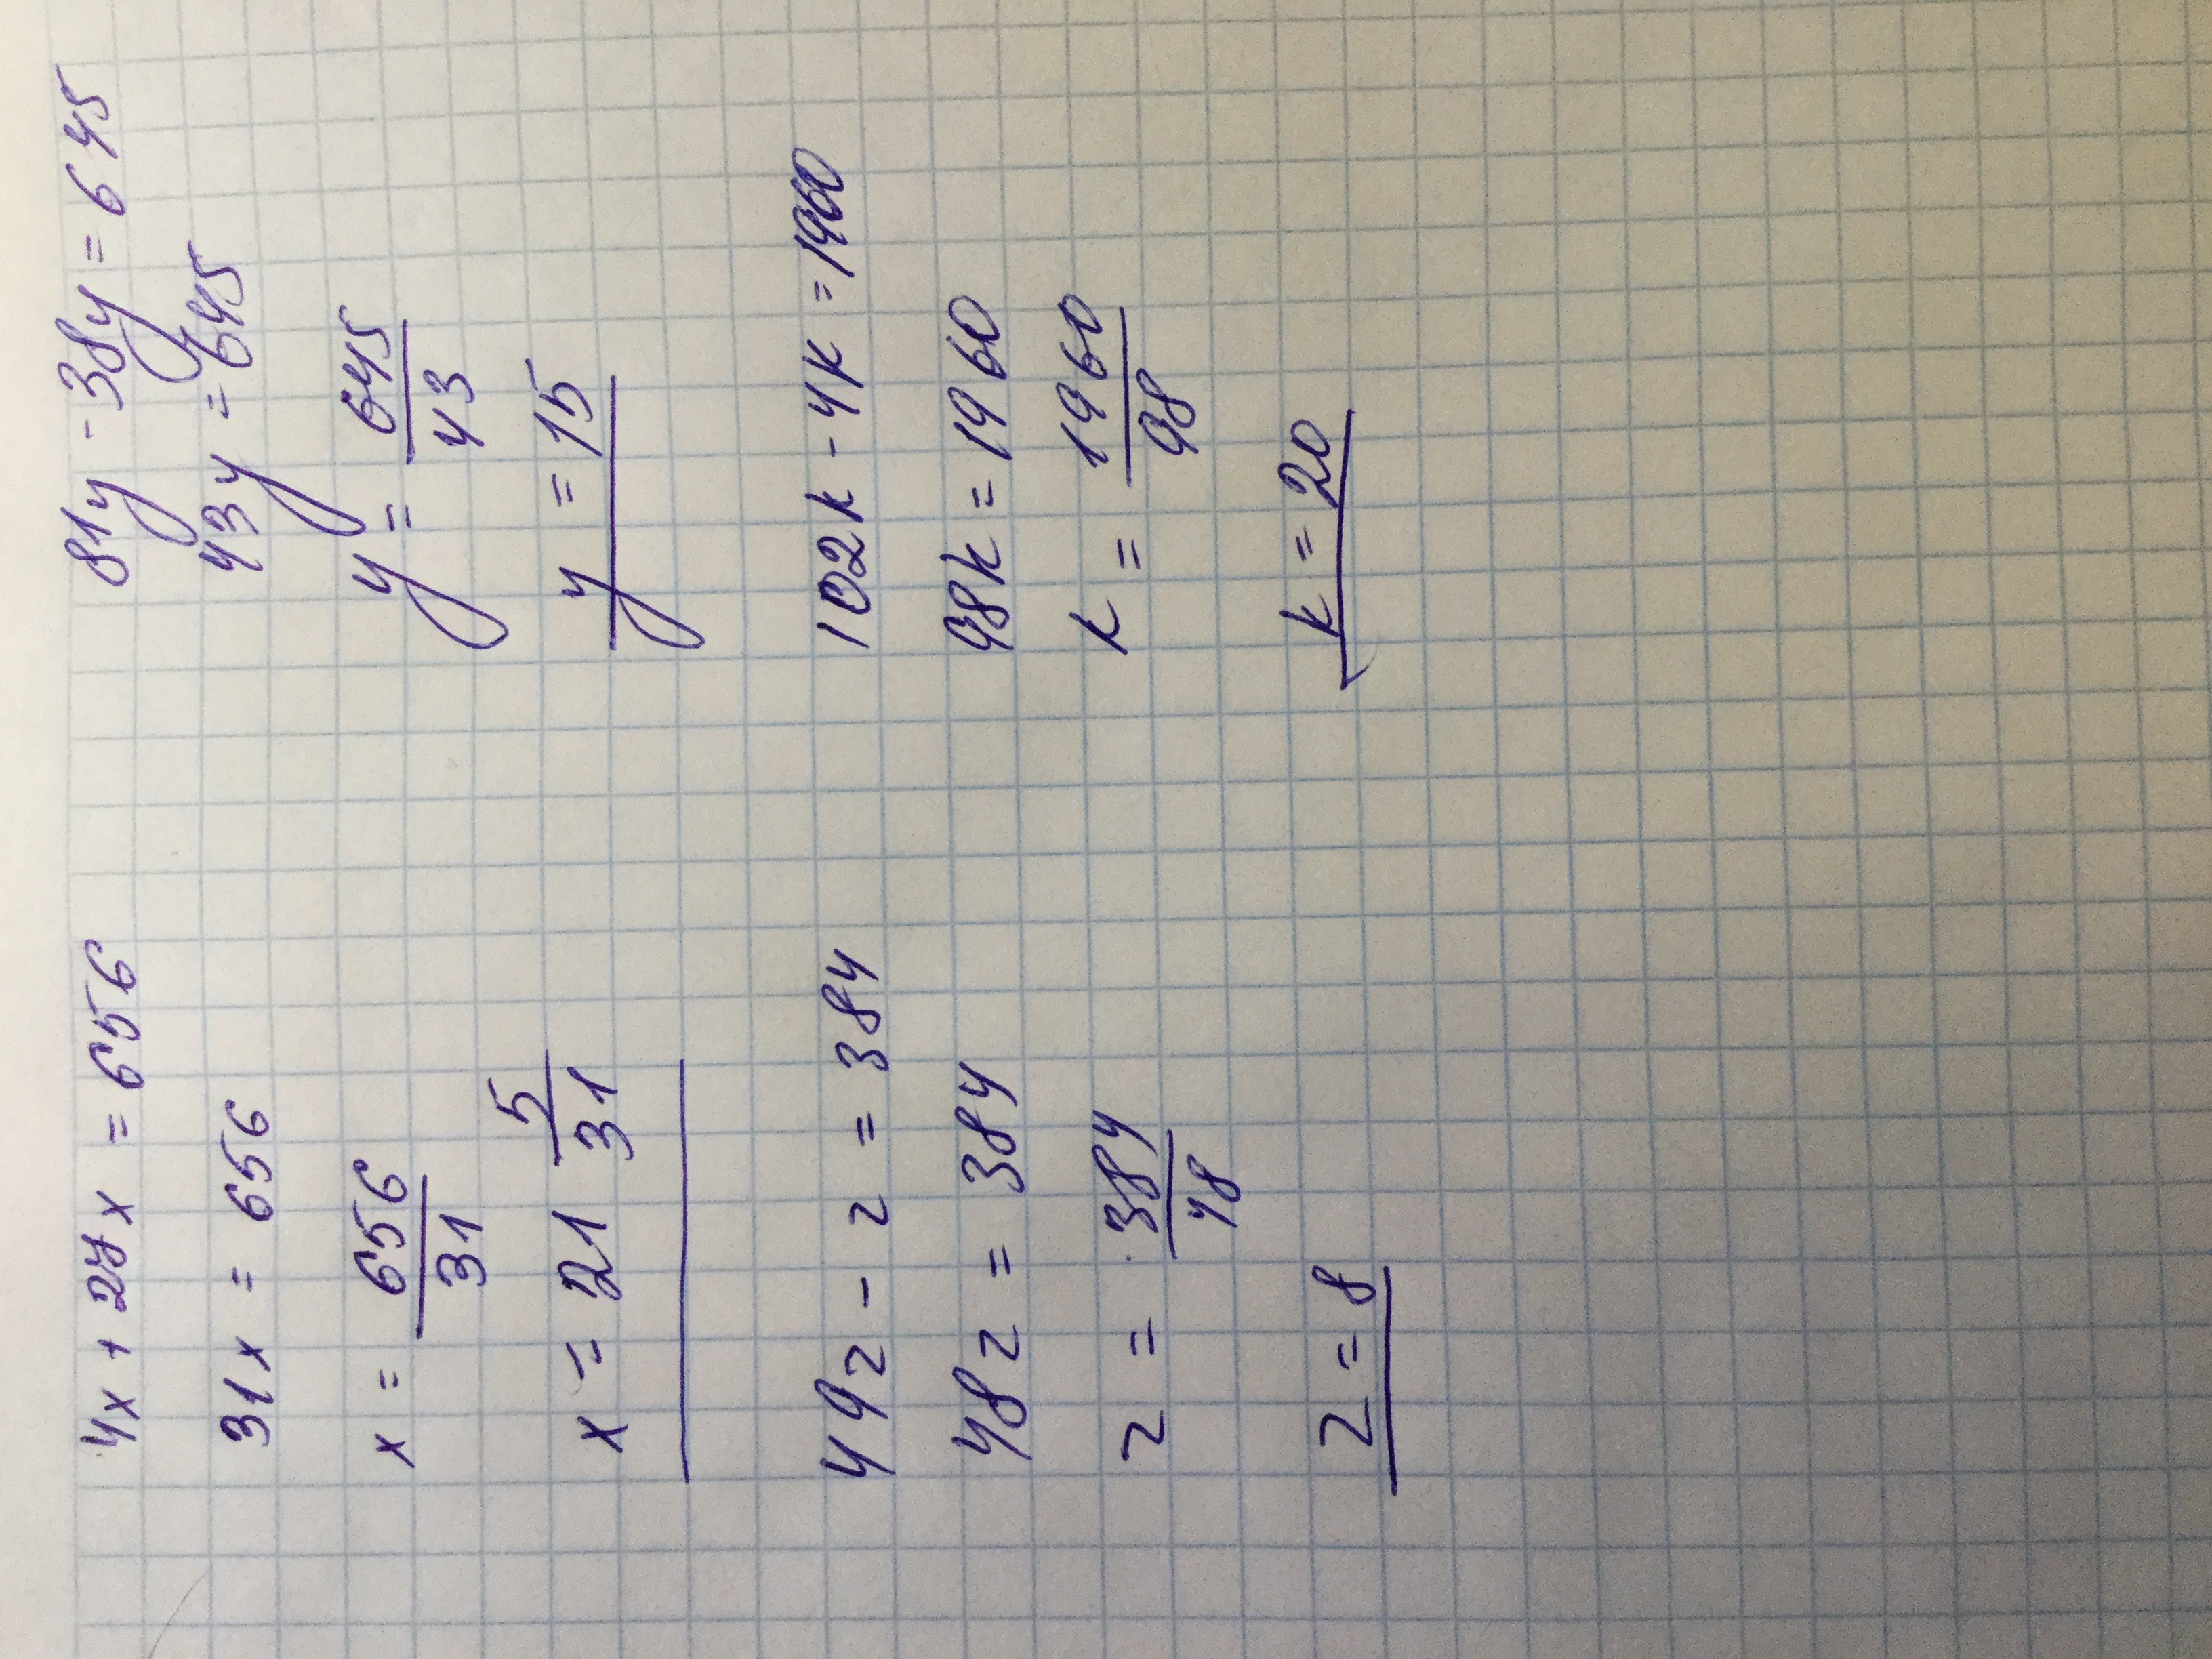 4x + 27x = 656
31x = 656
x = 656/31
x = 21 5/31
49z - z = 384
48z = 384
z = 384/48
z = 8
81y - 38y = 645
43y = 645
y = 645/43
y = 15
102k - 4k = 1960
98k = 1960
k = 1960/98
k = 20